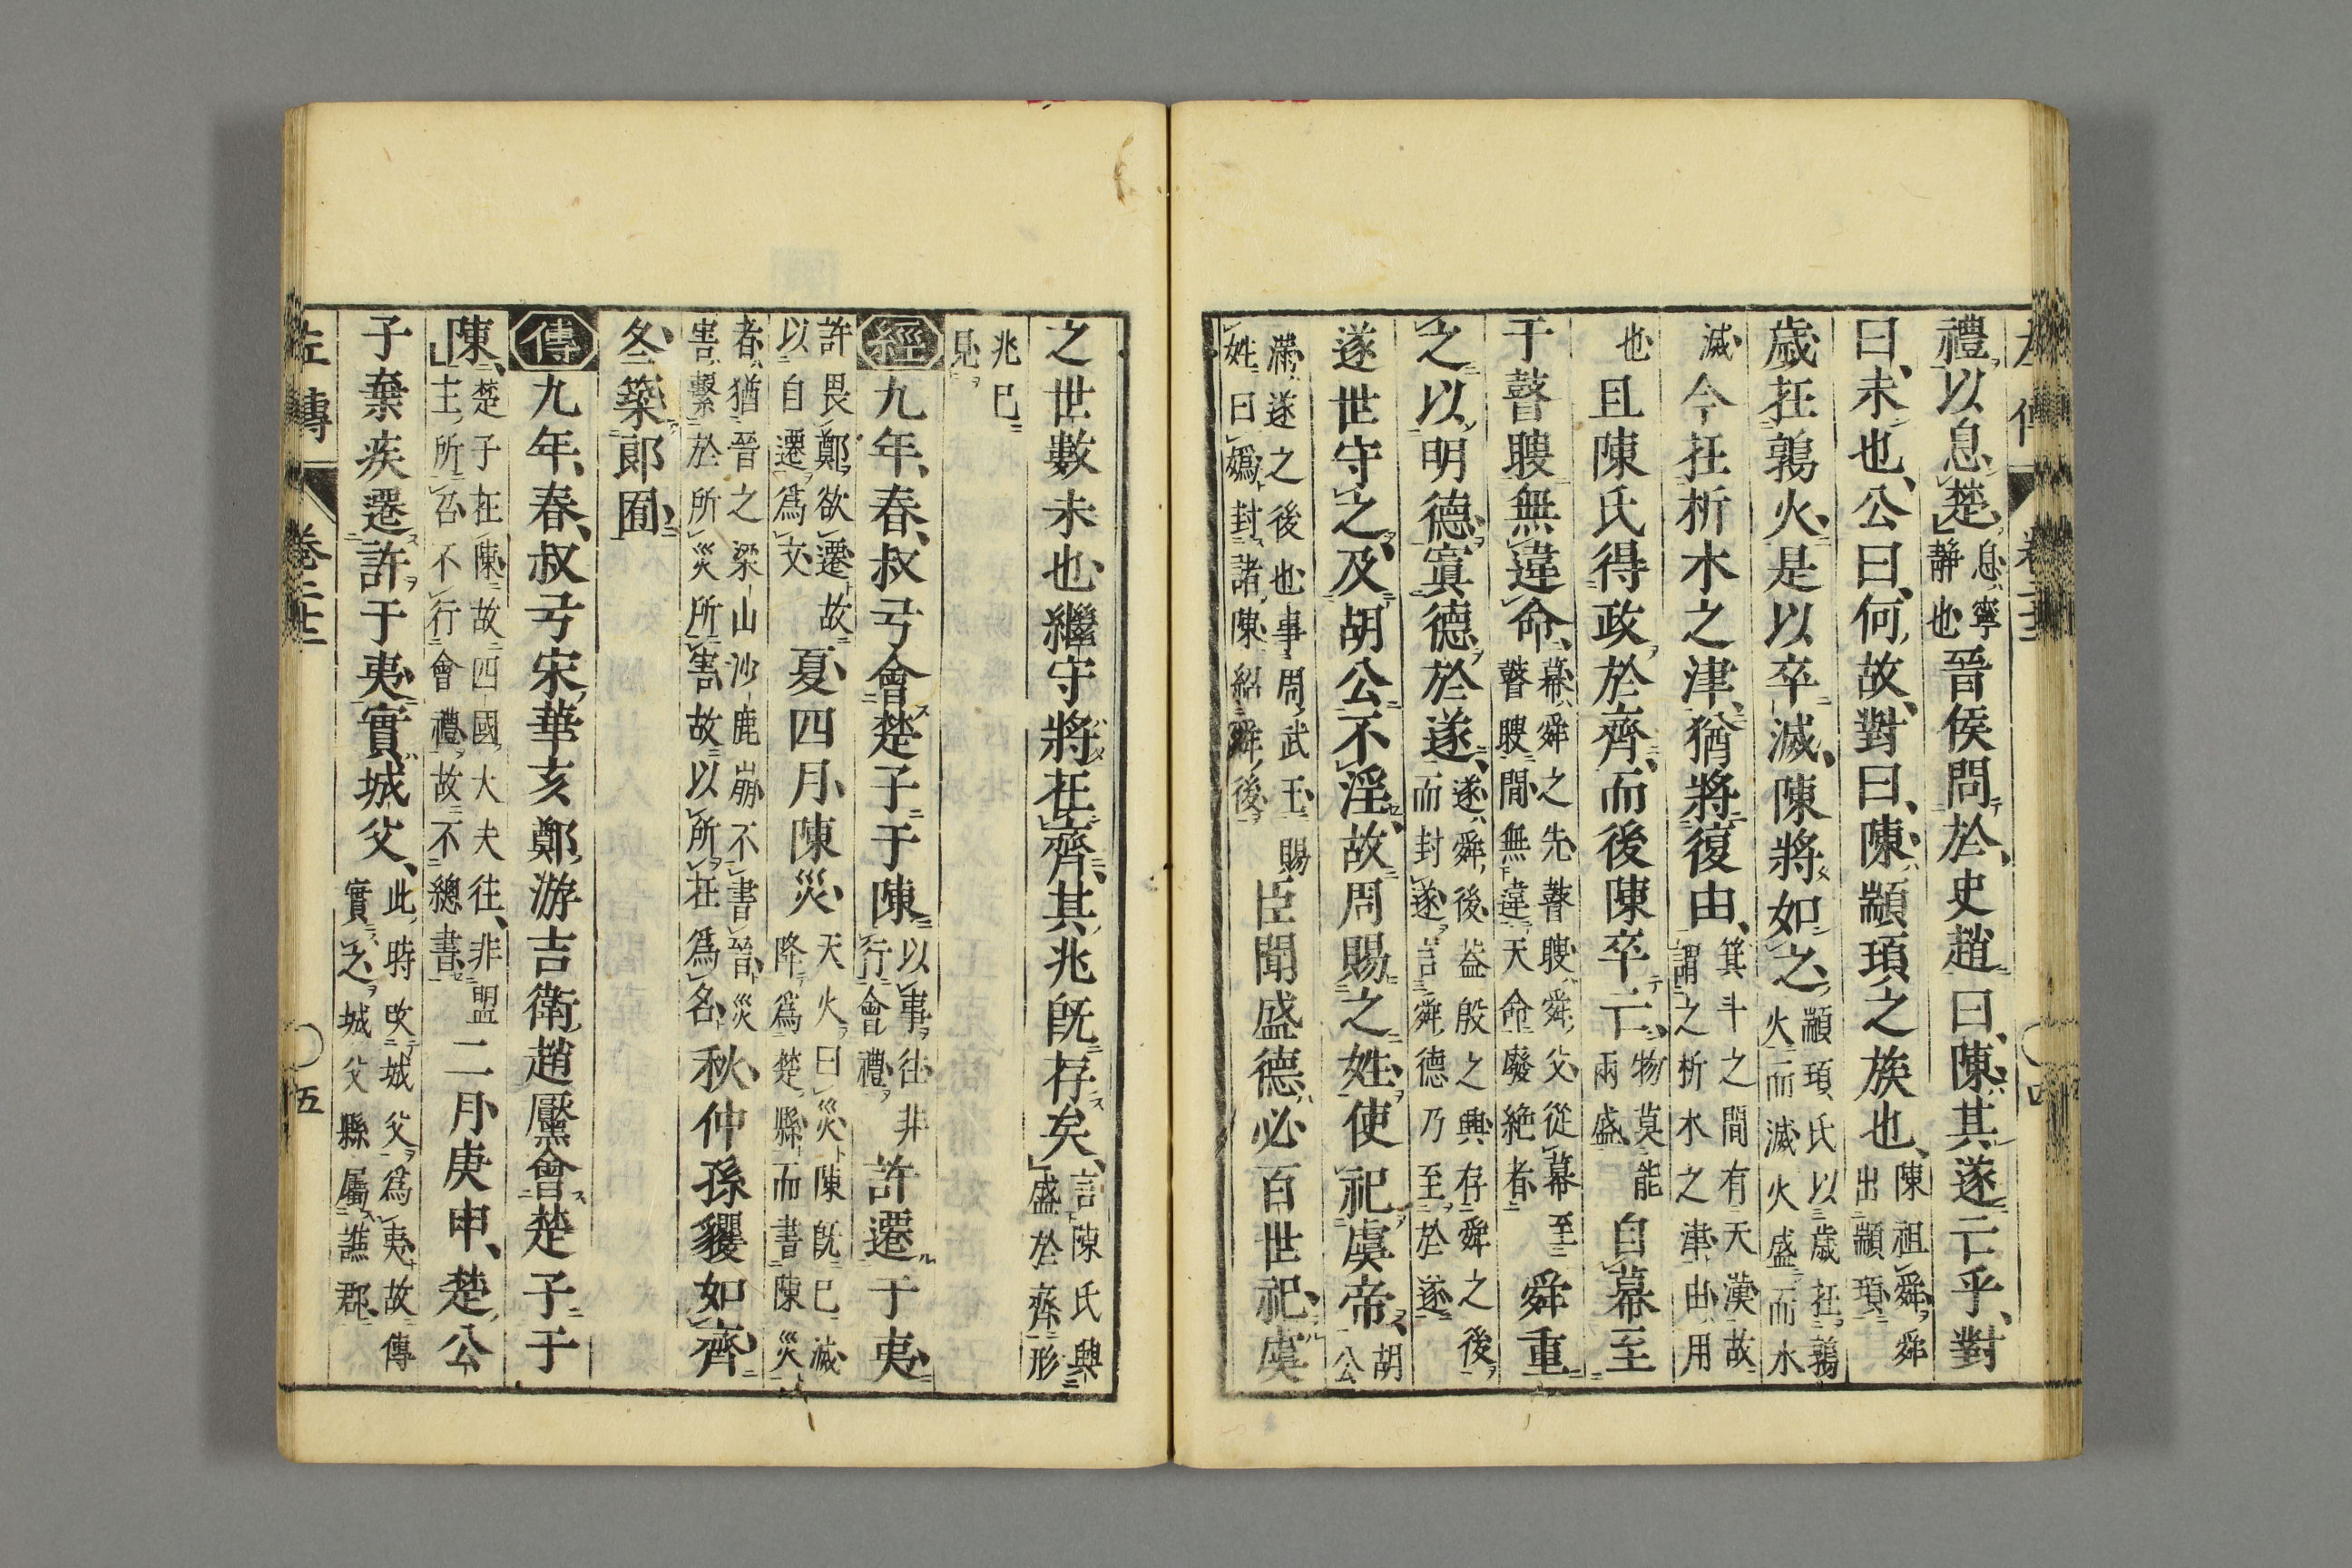 禮以息楚息寧靜也晉侯問於史趙曰陳其遂亡乎對
曰未也公曰何故對曰陳顓頊之族也陳祖舜舜出顓頊
歲在鶉火是以卒滅陳將如之顓頊氏以歲在鶉火而滅火盛而水
滅今在析木之津猶將復由箕斗之間有天漢故謂之析木之津由用
也且陳氏得政於齊而後陳卒亡物莫能兩盛自幕至
于瞽瞍無違命幕舜之先瞽瞍舜父從幕至瞽瞍間無違天命廢絶者舜重
之以明德寘德於遂遂舜後盖殷之興存舜之後而封遂言舜德乃至於遂
遂世守之及胡公不淫故周賜之姓使祀虞帝胡公
滿遂之後也事周武王賜姓曰嬀封諸陳紹舜後臣聞盛德必百世祀虞
之世數未也繼守將在齊其兆既存矣言陳氏興盛於齊形
兆已見
經九年春叔弓會楚子于陳以事往非行會禮許遷于夷
許畏鄭欲遷故以自遷爲文夏四月陳災天火曰災陳既已滅降爲楚縣而書陳災
者猶晉之梁山沙鹿崩不書晉災害繫於所災所害故以所在爲名秋仲孫貜如齊
冬築郎囿
傳九年春叔弓宋華亥鄭游吉衛趙黶會楚子于
陳楚子在陳故四國大夫往非盟主所召不行會禮故不總書二月庚申楚公
子棄疾遷許于夷實城父此時改城父爲夷故傳實之城父縣屬譙郡
左傳 卷二十二 五